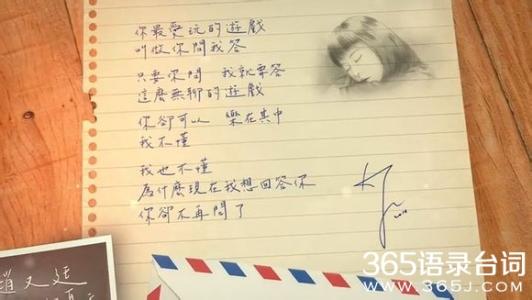 你最愛玩的遊戲
叫做你問我答
只要你問 我就要答
這麼無聊的遊戲
你卻可以 樂在其中
我不懂
我也不懂
為什麼現在我想回答你
你卻不再問了
趙又廷
365语录台词
www.365juzi.com